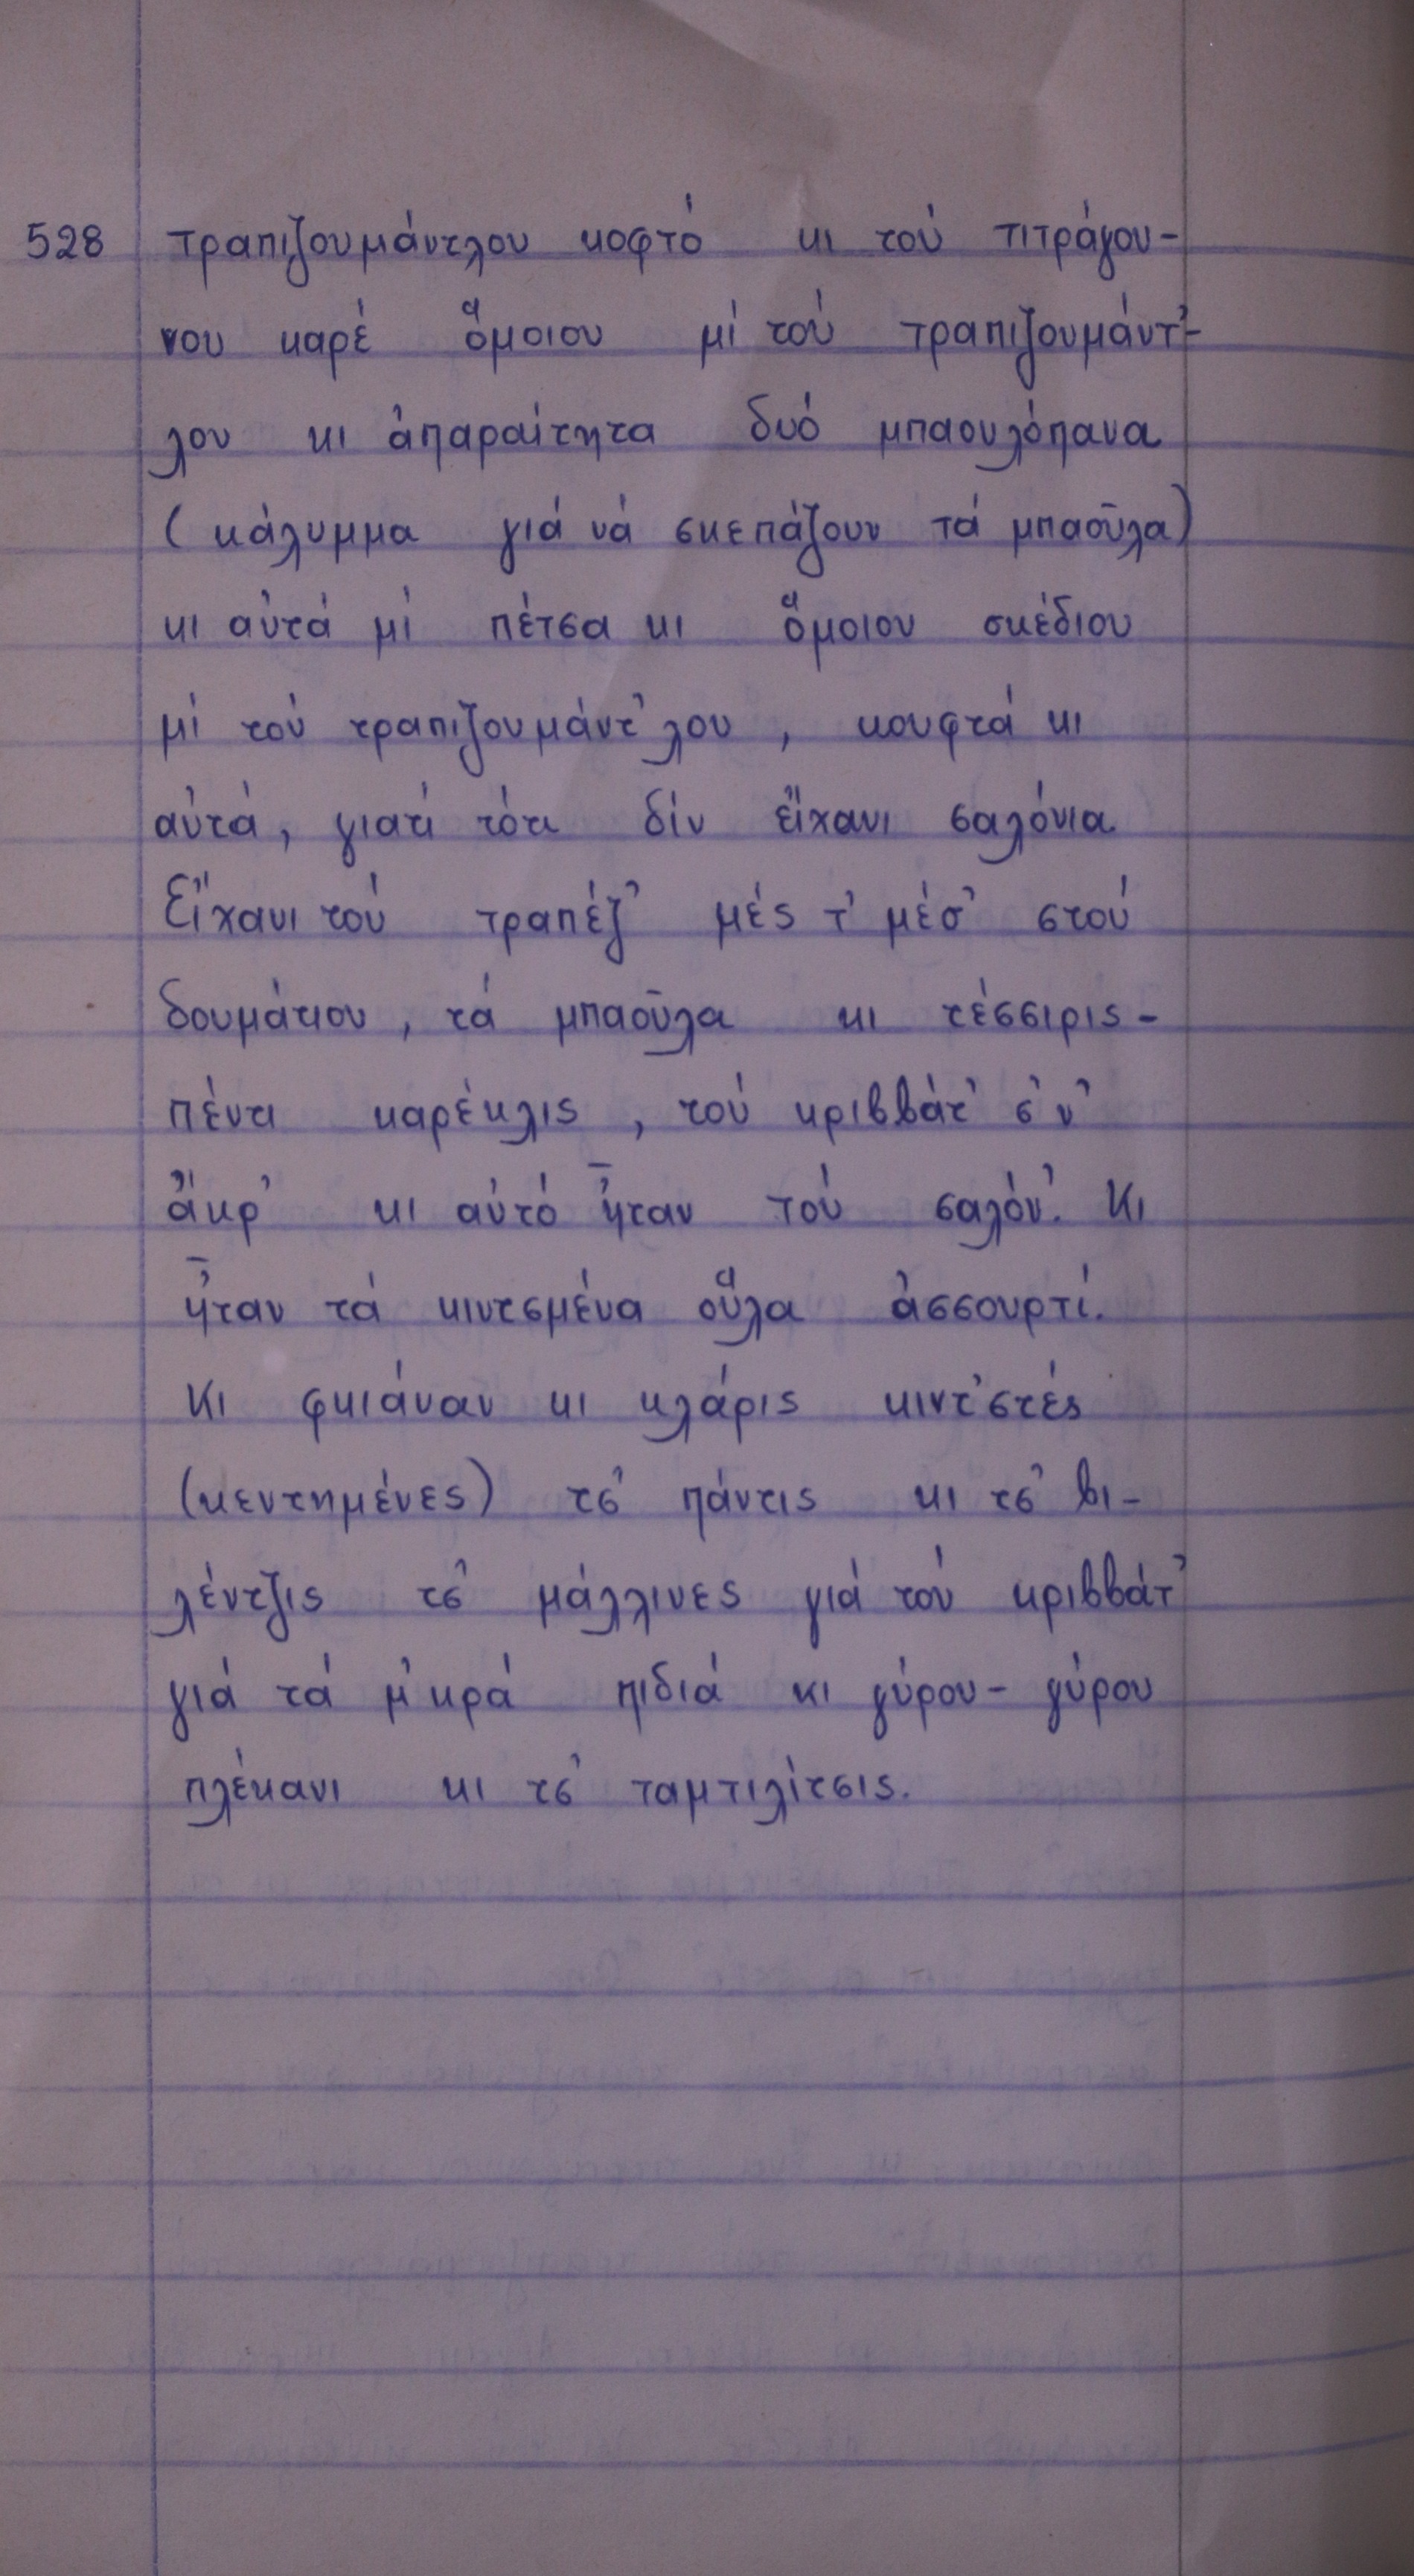 528 τραπιζουμάντλου κοφτό κι τού τιτράγου-
νου καρέ ὅμοιου μί τού τραπιζουμάντ'-
λου κι ἀπαραίτητα δυό μπαουλόπανα
(κάλυμμα γιά νά σκεπάζουν τά μπαοῦλα)
κι αὐτά μί πέτσα κι ὅμοιου σκέδιου
μί τού τραπιζουμάντ'λου, κουφτά κι
αὐτά, γιατί τότι δίν εἴχανι σαλόνια
Εἴχανι τού τραπέζ' μές τ' μέσ' στού
δουμάτιου, τά μπαοῦλα κι τέσσιρις-
πέντι καρέκλις, τού κριββάτ' σ' ν'
ἄκρ' κι αὐτό ἦταν τού σαλόν'. Κι
ἦταν τά κιντσμένα οὕλα ἀσσουρτί.
Κι φκιάναν κι κλάρις κιντ'στές
(κεντημένες) τσ' πάντις κι τσ' βι-
λέντζις τσ' μάλλινες γιά τού κριββάτ'
γιά τά μ'κρά πιδιά κι γύρου-γύρου
πλέκανι κι τσ' ταμτιλίτσις.